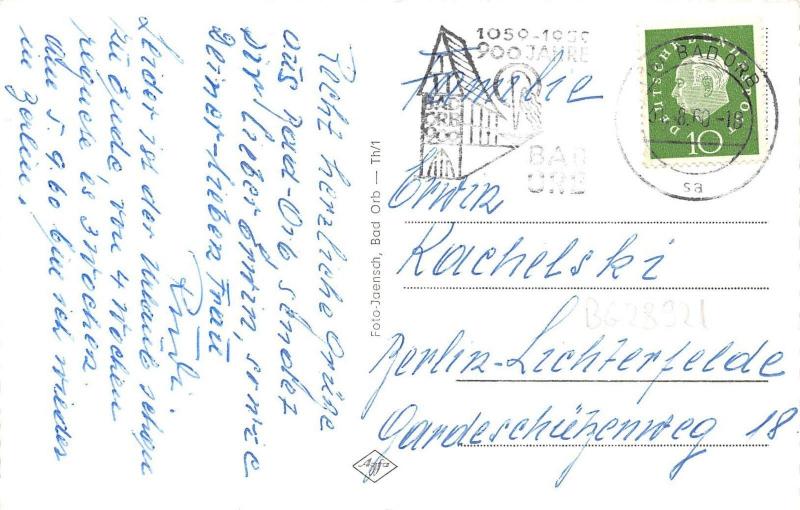 Recht herzliche Grüße
aus Bad-Orb sendet
Dir lieber Erwin, sowie
Deiner lieben Frau
Rudi.
Leider ist der Urlaub schon
zu Ende, von 4 Wochen
requese is 3 Wochen.
Am 5.9.60 bin ich wieder
in Berlin.
Foto-Jaensch, Bad Orb — Th/1
Affa
1059-1959
900 JAHRE
BAD
ORB
BAD
ORB
BAD ORB
.8.60-18
sa
DEUTSCHE BUNDESPOST
10
Familie
Erwin
Rachelski
BG28921
Berlin-Lichterfelde
Gardeschützenweg 18